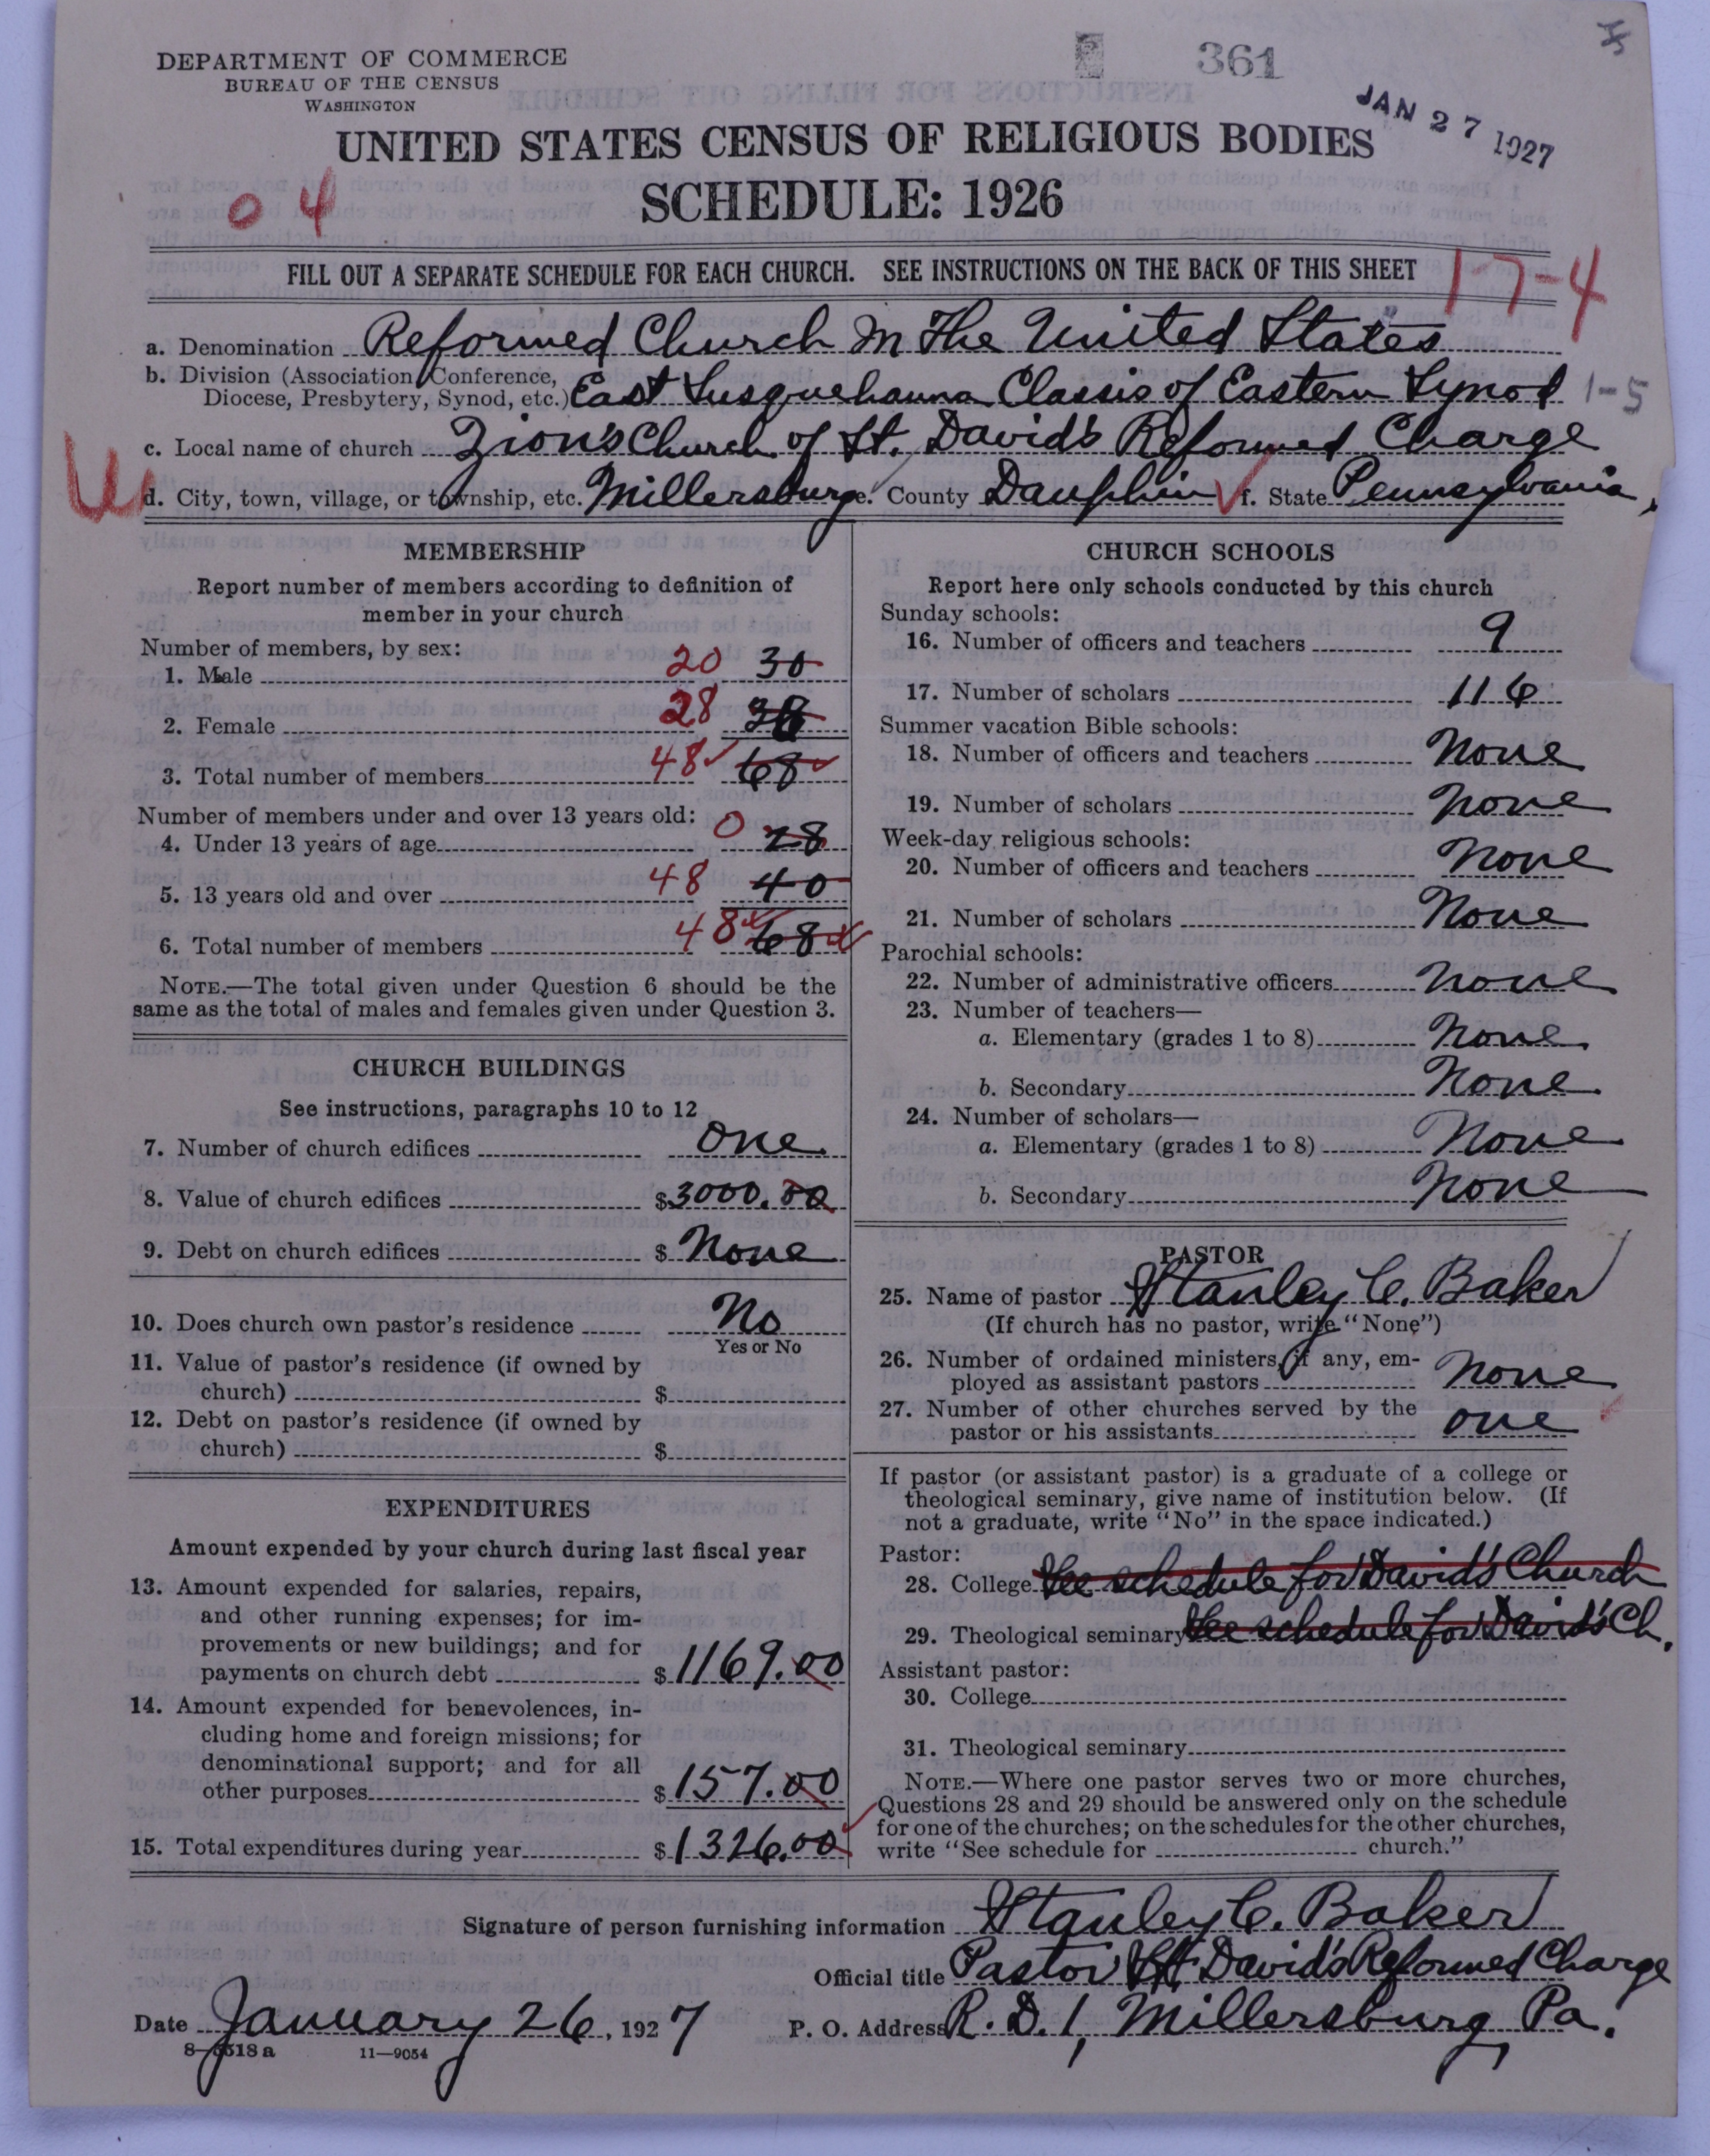 361
JAN 27 1927
DEPARTMENT OF COMMERCE
BUREAU OF THE CENSUS
WASHINGTON
UNITED STATES CENSUS OF RELIGIOUS BODIES
SCHEDULE: 1926
04
FILL OUT A SEPARATE SCHEDULE FOR EACH CHURCH. SEE INSTRUCTIONS ON THE BACK OF THIS SHEET
17-4
a. Denomination Reformed Church in The United States
b. Division (Association, Conference,
Diocese, Presbytery, Synod, etc.) East Susquehanna Classis of Eastern Synod 1-5
c. Local name of church Zion's Church of St. David's Reformed Charge
d. City, town, village, or township, etc. Millersburg e. County Dauphin f. State Pennsylvania,
MEMBERSHIP
Report number of members according to definition of
member in your church
Number of members, by sex:
1. Male 20 30
2. Female 28 38
3. Total number of members 48 68
Number of members under and over 13 years old:
4. Under 13 years of age 0 28
5. 13 years old and over 48 40
6. Total number of members 48 68
NOTE.—The total given under Question 6 should be the
same as the total of males and females given under Question 3.
CHURCH BUILDINGS
See instructions, paragraphs 10 to 12
7. Number of church edifices one
8. Value of church edifices $3000.00
9. Debt on church edifices $ None
10. Does church own pastor's residence No
Yes or No
11. Value of pastor's residence (if owned by
church) $
12. Debt on pastor's residence (if owned by
church) $
EXPENDITURES
Amount expended by your church during last fiscal year
13. Amount expended for salaries, repairs,
and other running expenses; for im-
provements or new buildings; and for
payments on church debt $1169.00
14. Amount expended for benevolences, in-
cluding home and foreign missions; for
denominational support; and for all
other purposes $157.00
15. Total expenditures during year $1326.00
CHURCH SCHOOLS
Report here only schools conducted by this church
Sunday schools:
16. Number of officers and teachers 9
17. Number of scholars 116
Summer vacation Bible schools:
18. Number of officers and teachers None
19. Number of scholars None
Week-day religious schools:
20. Number of officers and teachers None
21. Number of scholars None
Parochial schools:
22. Number of administrative officers None
23. Number of teachers—
a. Elementary (grades 1 to 8) None
b. Secondary None
24. Number of scholars—
a. Elementary (grades 1 to 8) None
b. Secondary None
PASTOR
25. Name of pastor Stanley C. Baker
(If church has no pastor, write "None")
26. Number of ordained ministers, if any, em-
ployed as assistant pastors None
27. Number of other churches served by the
pastor or his assistants one
If pastor (or assistant pastor) is a graduate of a college or
theological seminary, give name of institution below. (If
not a graduate, write "No" in the space indicated.)
Pastor:
28. College See schedule for David's Church
29. Theological seminary See schedule for David's Ch.
Assistant pastor:
30. College
31. Theological seminary
NOTE.—Where one pastor serves two or more churches,
Questions 28 and 29 should be answered only on the schedule
for one of the churches; on the schedules for the other churches,
write "See schedule for church."
Signature of person furnishing information Stanley C. Baker
Official title Pastor St. David's Reformed Charge
Date January 26, 1927 P. O. Address R. D. 1, Millersburg, Pa.
8-5518a 11—9054